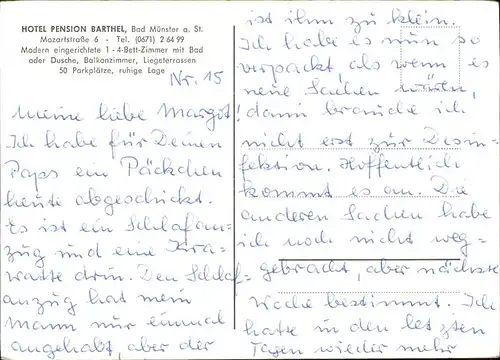 HOTEL PENSION BARTHEL, Bad Münster a. St.
Mozartstraße 6 - Tel. (0671) 2 64 99
Modern eingerichtete 1-4-Bett-Zimmer mit Bad
oder Dusche, Balkonzimmer, Liegeterrassen
50 Parkplätze, ruhige Lage
Nr. 15
Meine liebe Margot!
Ich habe für Deinen
Paps ein Päckchen
heute abgeschickt.
Es ist ein Schlafan-
zug und eine Kra-
watte drin. Den Schlaf-
anzug hat mein
Mann nur einmal
angehabt, aber der
ist ihm zu klein.
Ich habe es nun so
verpackt, als wenn es
neue Sachen wären,
dann brauche ich
nicht erst zur Desin-
fektion. Hoffentlich
kommt es an. Die
anderen Sachen habe
ich noch nicht weg-
gebracht, aber nächste
Woche bestimmt. Ich
hatte in den letzten
Tagen wieder mehr